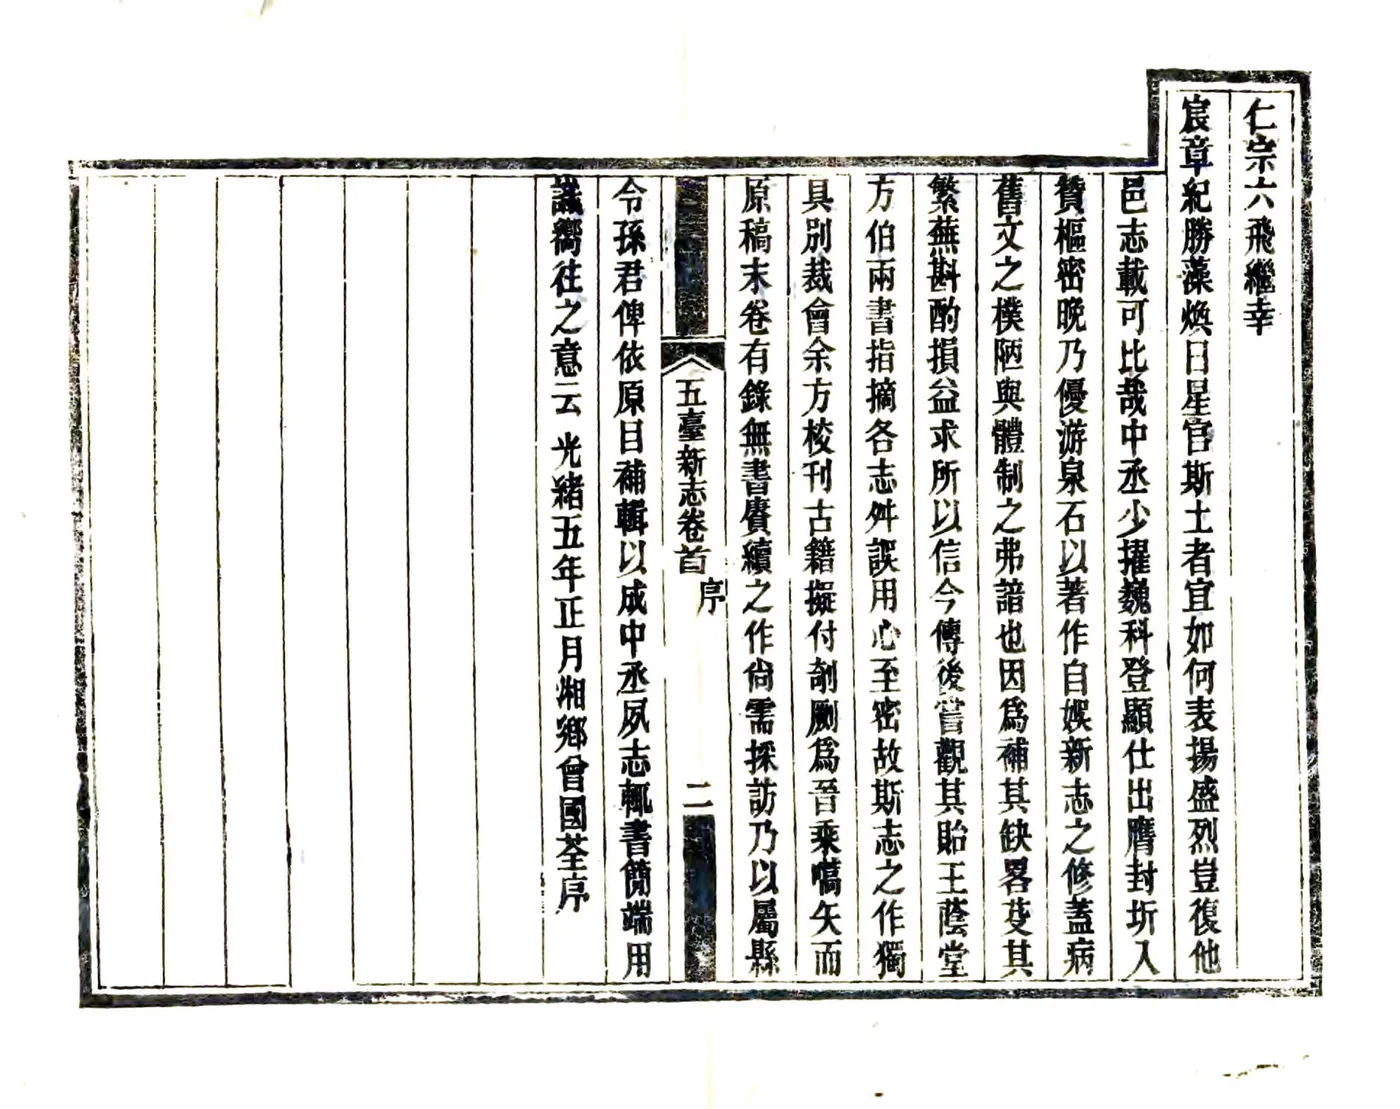 仁宗六飛繼幸
宸章紀勝藻煥日星官斯土者宜如何表揚盛烈豈復他
邑志載可比哉中丞少擢巍科登顯仕出膺封圻入
贊樞密晚乃優游泉石以著作自娛新志之修蓋病
舊文之樸陋與體制之弗諳也因爲補其缺畧芟其
繁蕪斟酌損益求所以信今傳後嘗觀其貽王蔭堂
方伯兩書指摘各志舛誤用心至密故斯志之作獨
具別裁會余方校刊古籍擬付剞劂爲晉乘嚆矢而
原稿末卷有錄無書賡續之作尙需採訪乃以屬縣
五臺新志卷首
序
二
令孫君俾依原目補輯以成中丞夙志輒書簡端用
識嚮往之意云 光緒五年正月湘鄉曾國荃序